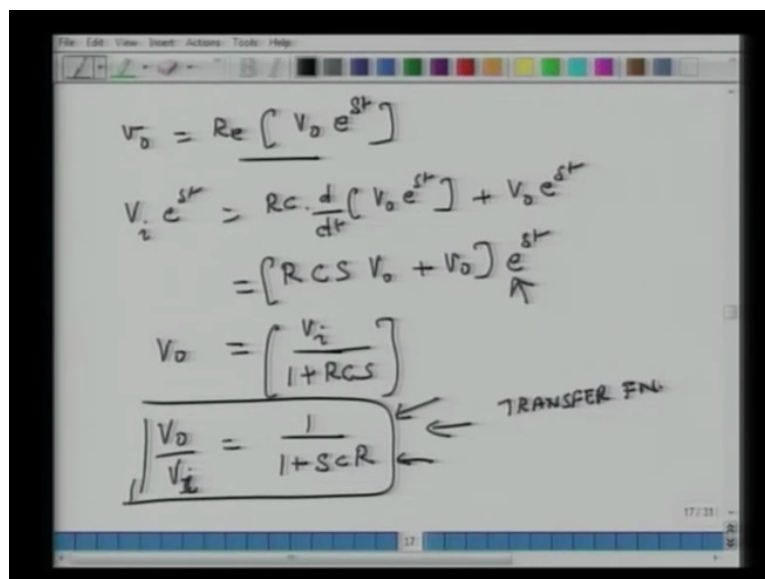 File Edit View Insert Actions Tools Help
v₀ = Re [ V₀ e^{st} ]
V_i e^{st} = RC. d/dt [ V₀ e^{st} ] + V₀ e^{st}
= [ RCS V₀ + V₀ ] e^{st}
V₀ = [ V_i / 1 + RCS ]
V₀ / V_i = 1 / 1 + SCR TRANSFER FN.
17/31
17